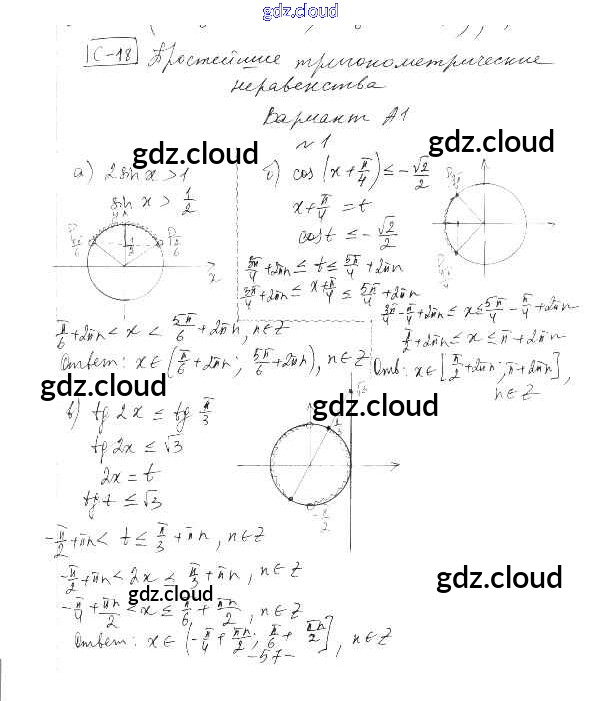 gdz.cloud
С-18 Простейшие тригонометрические
неравенства
Вариант А1
№1
а) 2 sin x > 1
sin x > 1/2
π/6 + 2πn < x < 5π/6 + 2πn, n∈Z
Ответ: x∈(π/6 + 2πn; 5π/6 + 2πn), n∈Z
б) cos(x + π/4) ≤ -√2/2
x + π/4 = t
cos t ≤ -√2/2
3π/4 + 2πn ≤ t ≤ 5π/4 + 2πn
3π/4 + 2πn ≤ x + π/4 ≤ 5π/4 + 2πn
3π/4 - π/4 + 2πn ≤ x ≤ 5π/4 - π/4 + 2πn
π/2 + 2πn ≤ x ≤ π + 2πn
Отв: x∈[π/2 + 2πn; π + 2πn],
n∈Z
gdz.cloud
gdz.cloud
gdz.cloud
gdz.cloud
в) tg 2x ≤ tg π/3
tg 2x ≤ √3
2x = t
tg t ≤ √3
√3
π/3
-π/2
-π/2 + πn < t ≤ π/3 + πn, n∈Z
-π/2 + πn < 2x ≤ π/3 + πn, n∈Z
-π/4 + πn/2 < x ≤ π/6 + πn/2, n∈Z
Ответ: x∈(-π/4 + πn/2; π/6 + πn/2], n∈Z
gdz.cloud
gdz.cloud
-57-